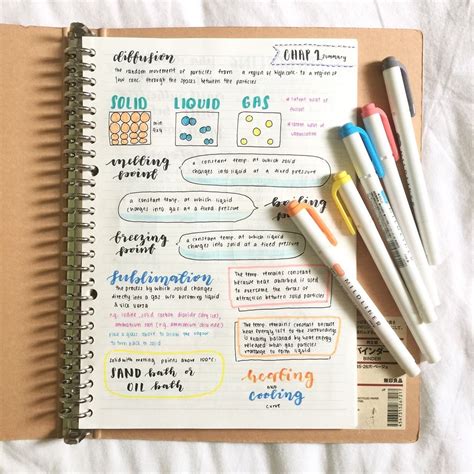 diffusion
CHAP 1 summary
the random movement of particles from a region of high conc. to a region of
low conc. through the spaces between the particles
SOLID LIQUID GAS
melting
point
a constant temp. at which solid
changes into liquid at a fixed pressure
a constant temp. at which liquid
changes into gas at a fixed pressure
boiling
point
freezing
point
a constant temp. at which liquid
changes into solid at a fixed pressure
sublimation
process by which solid changes
directly into a gas w/o becoming liquid
& vice versa
e.g. iodine, solid carbon dioxide (dry ice),
ammonium salts (e.g. ammonium chloride)
The temp. remains constant
because heat absorbed is used
to overcome the forces of
attraction between solid particles
The temp. remains constant because
heat energy lost to the surroundings
is exactly balanced by heat energy
released when gas particles
rearrange to form liquid
solid with melting points above 100°C:
SAND bath or
OIL bath
heating
and
cooling
curve
MILDLINER
バインダー
BINDER
無印良品